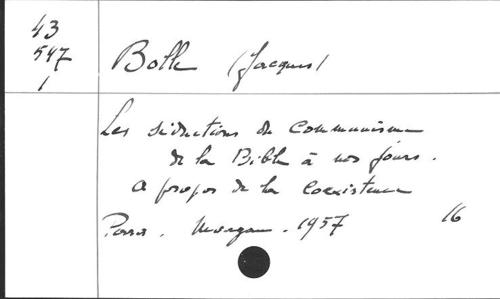 43
547
1
Bolle (Jacques)
Les séductions du communisme
de la Bible à nos jours.
A propos de la coexistence
Paris. Morgan. 1957
16